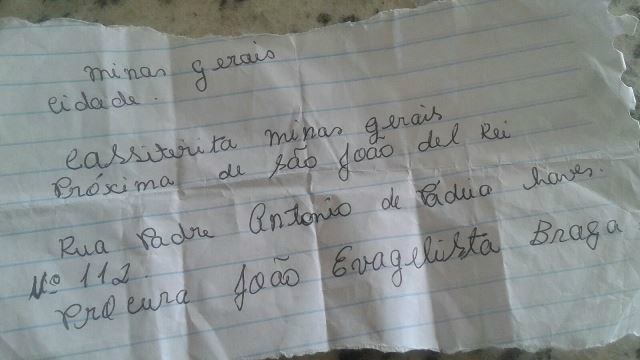 minas gerais
cidade.
Cassiterita minas gerais
Próxima de são joão del Rei
Rua Padre Antonio de Pádua haves.
Nº 112.
Procura joão Evagelista Braga